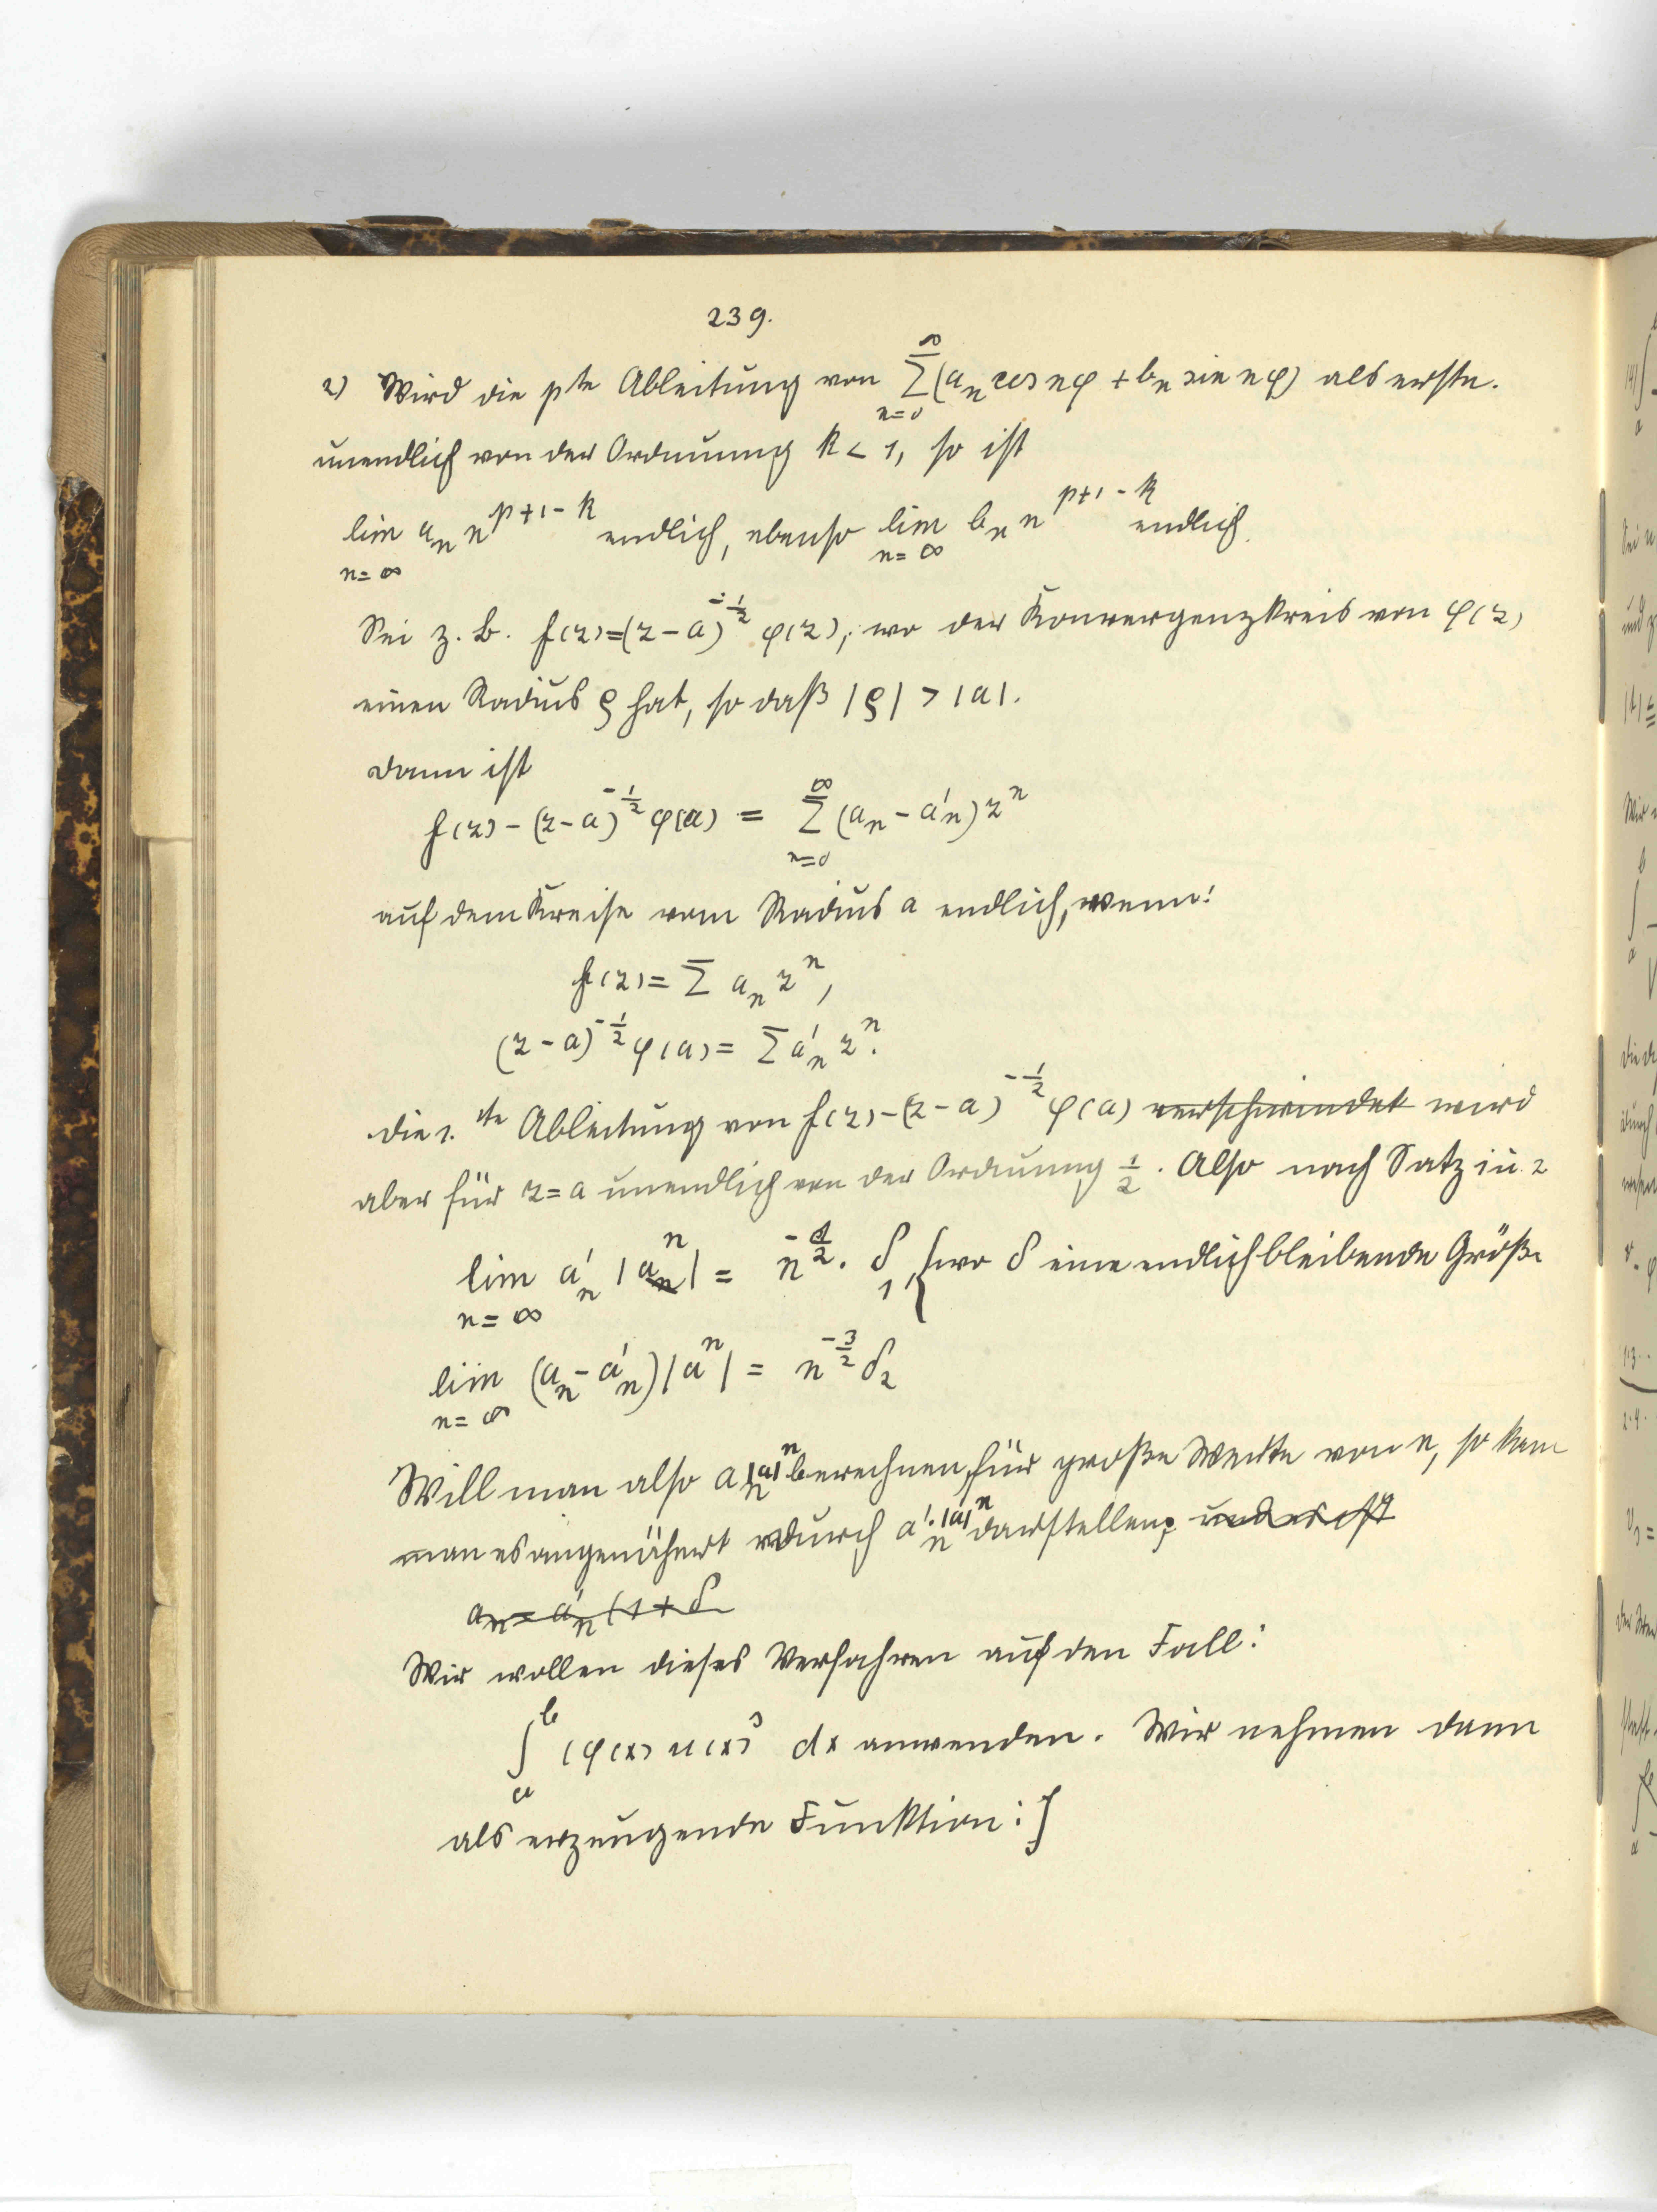 239.
2) Wird die pte Ableitung von \sum_{n=0}^{\infty} (a_n cos nφ + b_n sin nφ) als erste.
unendlich von der Ordnung k < 1, so ist
lim_{n=∞} a_n n^{p+1-k} endlich, ebenso lim_{n=∞} b_n n^{p+1-k} endlich.
Sei z. B. f(z)=(z-a)^{-\frac{1}{2}} φ(z), wo der Konvergenzkreis von φ(z)
einen Radius ϱ hat, so daß |ϱ| > |a|.
dann ist
f(z) - (z-a)^{-\frac{1}{2}} φ(a) = \sum_{n=0}^{∞} (a_n - a'_n) z^n
auf dem Kreise vom Radius a endlich, wenn:
f(z) = Σ a_n z^n,
(z-a)^{-\frac{1}{2}} φ(a) = Σ a'_n z^n.
die 1.te Ableitung von f(z) - (z-a)^{-\frac{1}{2}} φ(a) verschwindet wird
aber für z=a unendlich von der Ordnung \frac{1}{2}. Also nach Satz in 2
lim_{n=∞} a'_n |a^n| = n^{-\frac{1}{2}} . δ_1, {wo δ eine endlichbleibende Größe
lim_{n=∞} (a_n - a'_n) |a^n| = n^{-\frac{3}{2}} δ_2
Will man also a_n |a|^n berechnen, für große Werte von n, so kann
man es angenähert durch a'_n . |a|^n darstellen; und es ist
a_n = a'_n (1 + δ
Wir wollen dieses Verfahren auf den Fall:
\int_a^b (φ(x) u(x)^s dx anwenden. Wir nehmen dann
als erzeugende Funktion: }